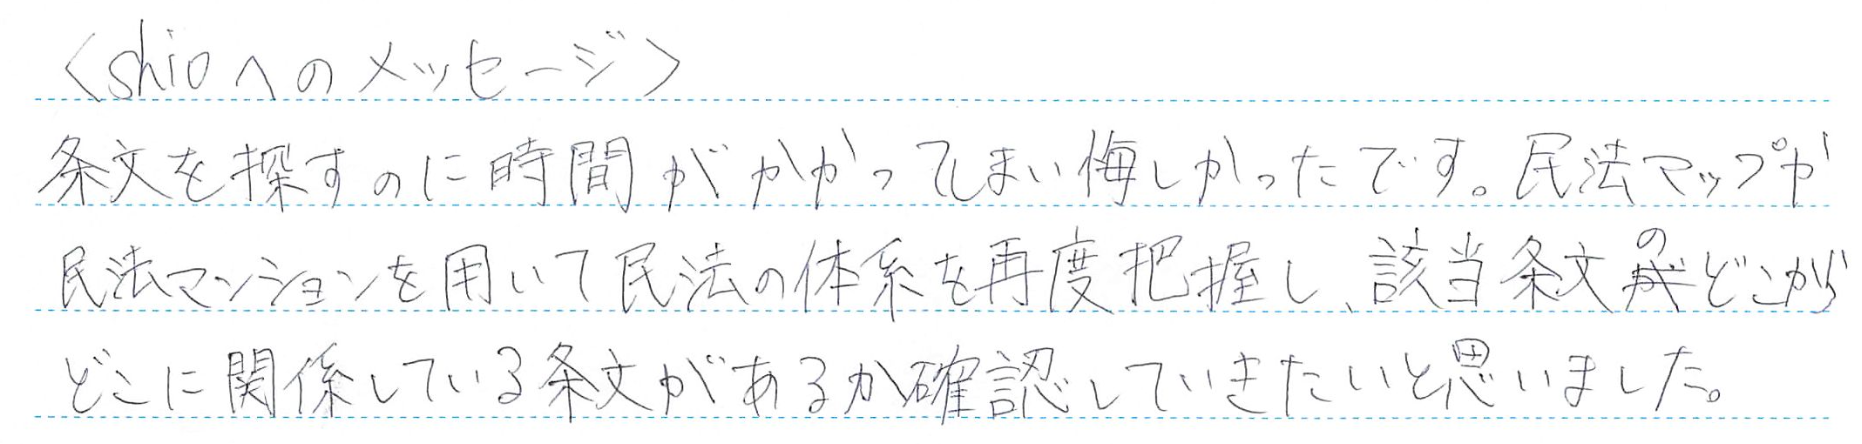 <shioへのメッセージ>
条文を探すのに時間がかかってしまい悔しかったです。民法マップや
民法マンションを用いて民法の体系を再度把握し、該当条文のどこから
どこに関係している条文があるか確認していきたいと思いました。